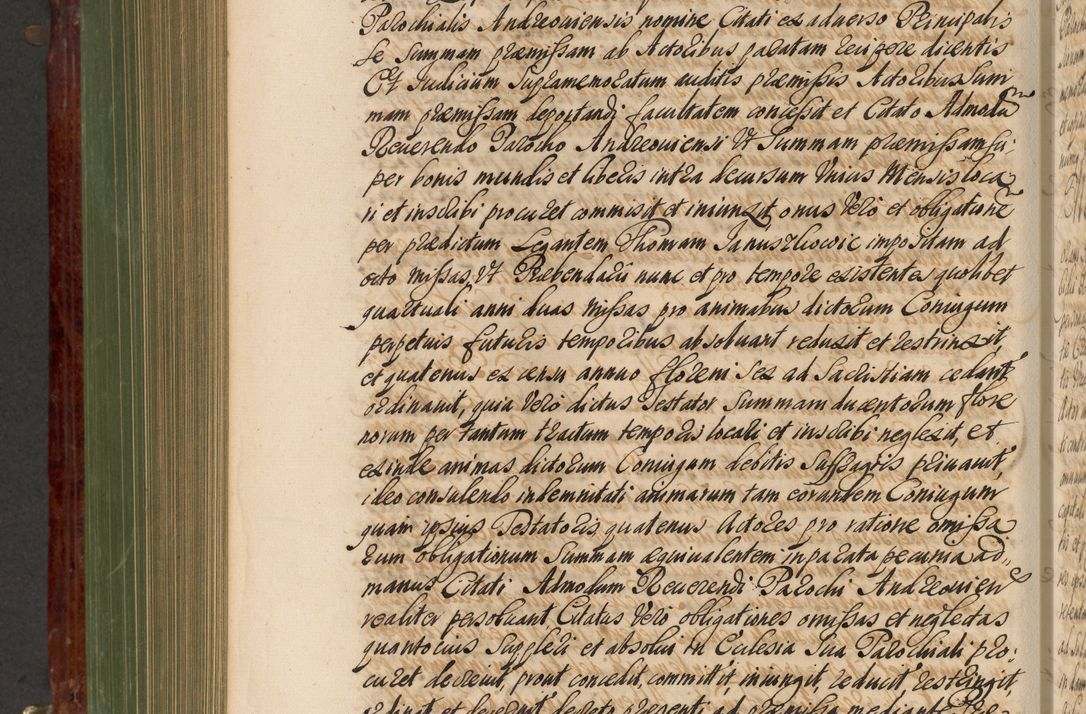 Parochialis Andreouiensis nomine Citati ex aduerso Principalis
se Summam præmissam ab Actoribus paratam recipere dicentis
Et Judicium Supramemoratum auditis præmissis Actoribus Sum
mam præmissam deportandi facultatem concessit et Citato Admodu
Reuerendo Parocho Andreouiensi Vt Summam præmissam su,
per bonis mundis et liberis intra decursum Vnius Mensis loca
ri et inscribi procuret commisit et iniunxit onus Vero et obligatione
per prædictum Legantem Thomam Januszkowic impositam ad
octo missas, Vt Præbendarii nunc et pro tempore existentes quolibet
quartuali anni duas Missas pro animabus dictorum Coniugum
perpetuis futuris temporibus absoluant reduxit et restrinxit,
et quatenus ex censu annuo floreni sex ad Sacristiam cedant
ordinauit, quia Vero dictus Testator Summam ducentorum flore
norum per tantum tractum temporis locari et inscribi neglexit, et
exinde animas dictorum Coniugum debitis Suffragys priuauit,
ideo consulendo indemnitati animarum tam eorundem Coniugum
quam ipsius Testatoris, quatenus Actores pro ratione omissa
rum obligationum Summam æquiualentem in parata pecunia ad
manus Citati Admodum Reuerendi Parochi Andreouien
realiter persoluant Citatus Vero obligationes omissas et neglectas
quantocius Suppleri et absolui in Ecclesia Sua Parochiali pro,
curet decreuit, prout concedit, committit, iniungit, reducit, restringit,
ordinat et decernit decreto præsenti ad præmissa mediante